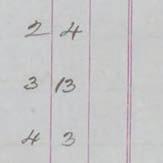 2 4
3 13
4 3